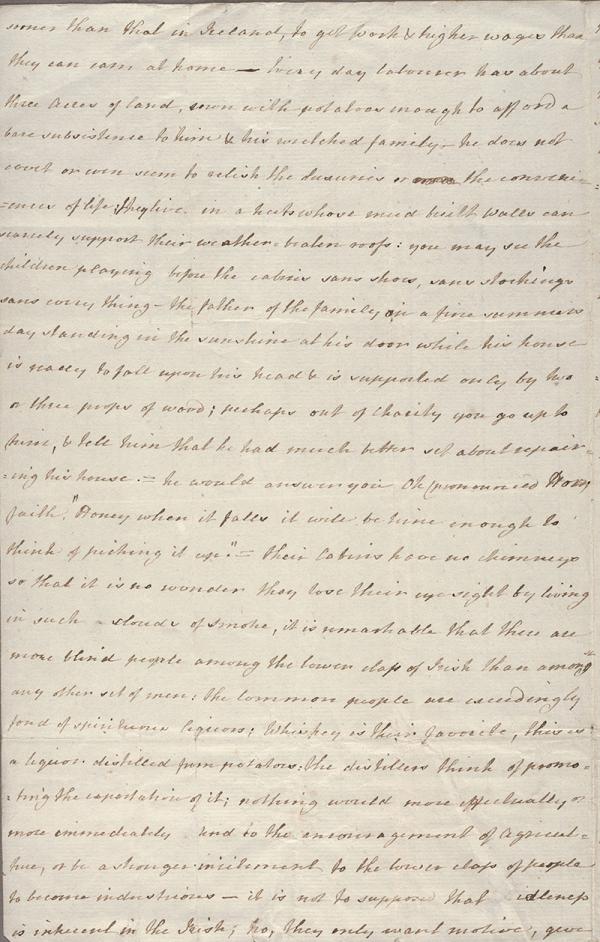 sooner than that in Ireland, to get work & higher wages than
they can earn at home — Every day labourer has about
three Acres of land, sown with potatoes enough to afford a
bare subsistence to him & his wretched family — he does not
covet or even seem to relish the luxuries or the conveni-
=ences of life; they live in a huts whose mud built walls can
scarcely support their weather-beaten roofs: you may see the
children playing before the cabins sans shoes, sans stockings
sans every thing — the father of the family on a fine summers
day standing in the sunshine at his door while his house
is ready to fall upon his head & is supported only by two
or three props of wood; perhaps out of Charity you go up to
him, & tell him that he had much better set about repair-
=ing his house. — he would answer you Oh (pronounced
faith, "Honey when it falls it will be time enough to
think of picking it up." = their Cabins have no chimneys
so that it is no wonder they lose their eye sight by living
in such clouds of smoke, it is remarkable that there are
more blind people among the lower class of Irish than among
any other set of men: the common people are exceedingly
fond of spirituous liquors; Whiskey is their favorite, this is
a liquor distilled from potatoes: the distillers think of promo-
-ting the exportation of it; nothing would more effectually, or
more immediately tend to the encouragement of Agricul-
ture, or be a stronger incitement to the lower class of people
to become industrious — it is not to suppose that idleness
is inherent in the Irish; no, they only want motive, give